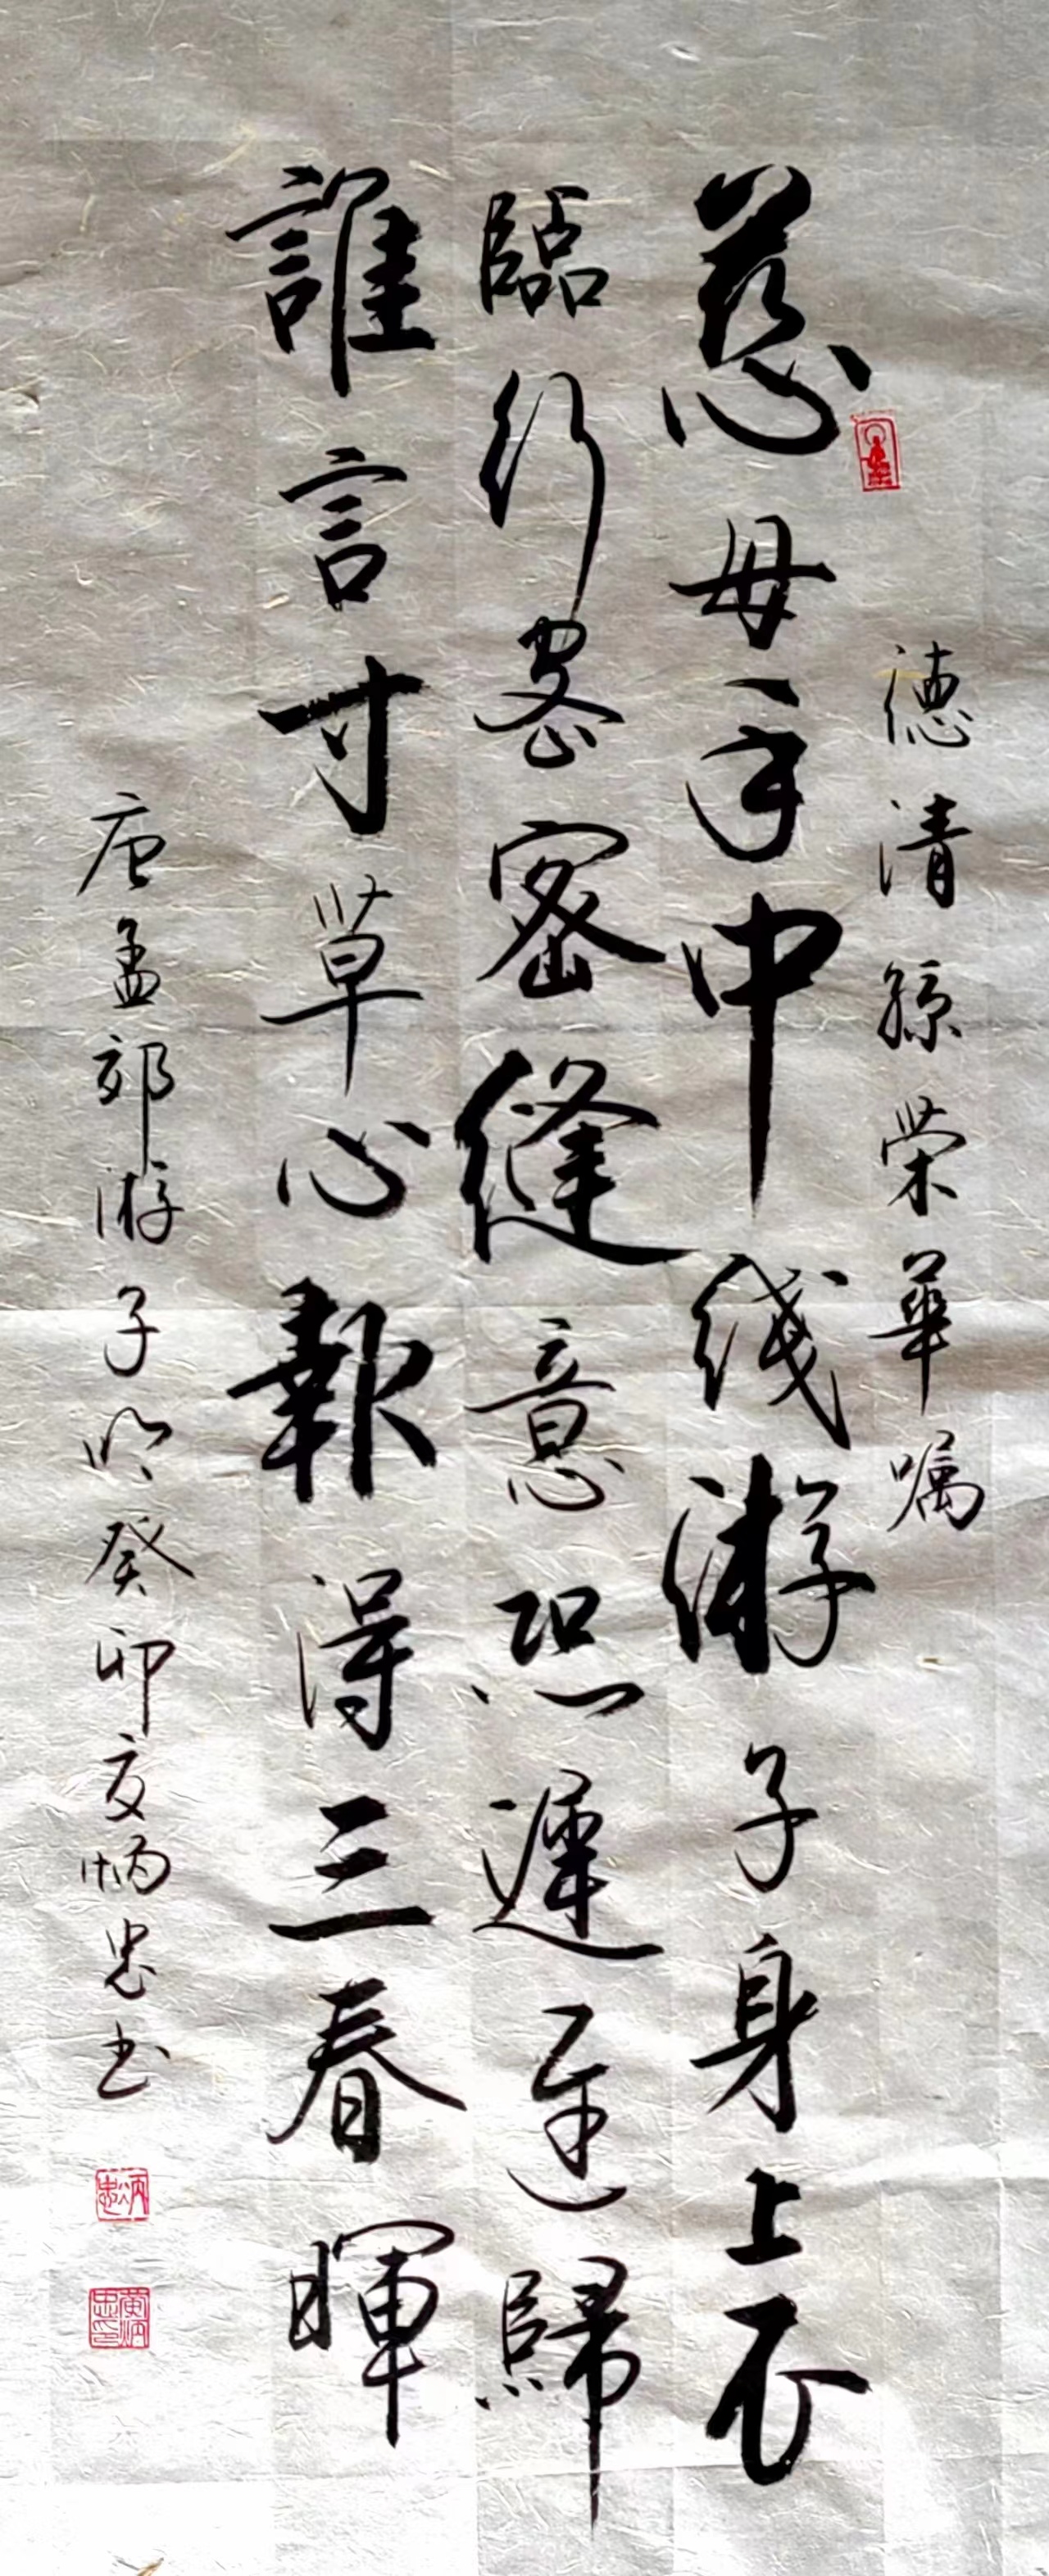 德清孫荣華嘱
慈母手中线游子身上衣
臨行密密縫意恐遲遲歸
誰言寸草心報得三春暉
唐孟郊游子吟癸卯夏炳忠书
炳忠
黄炳忠印